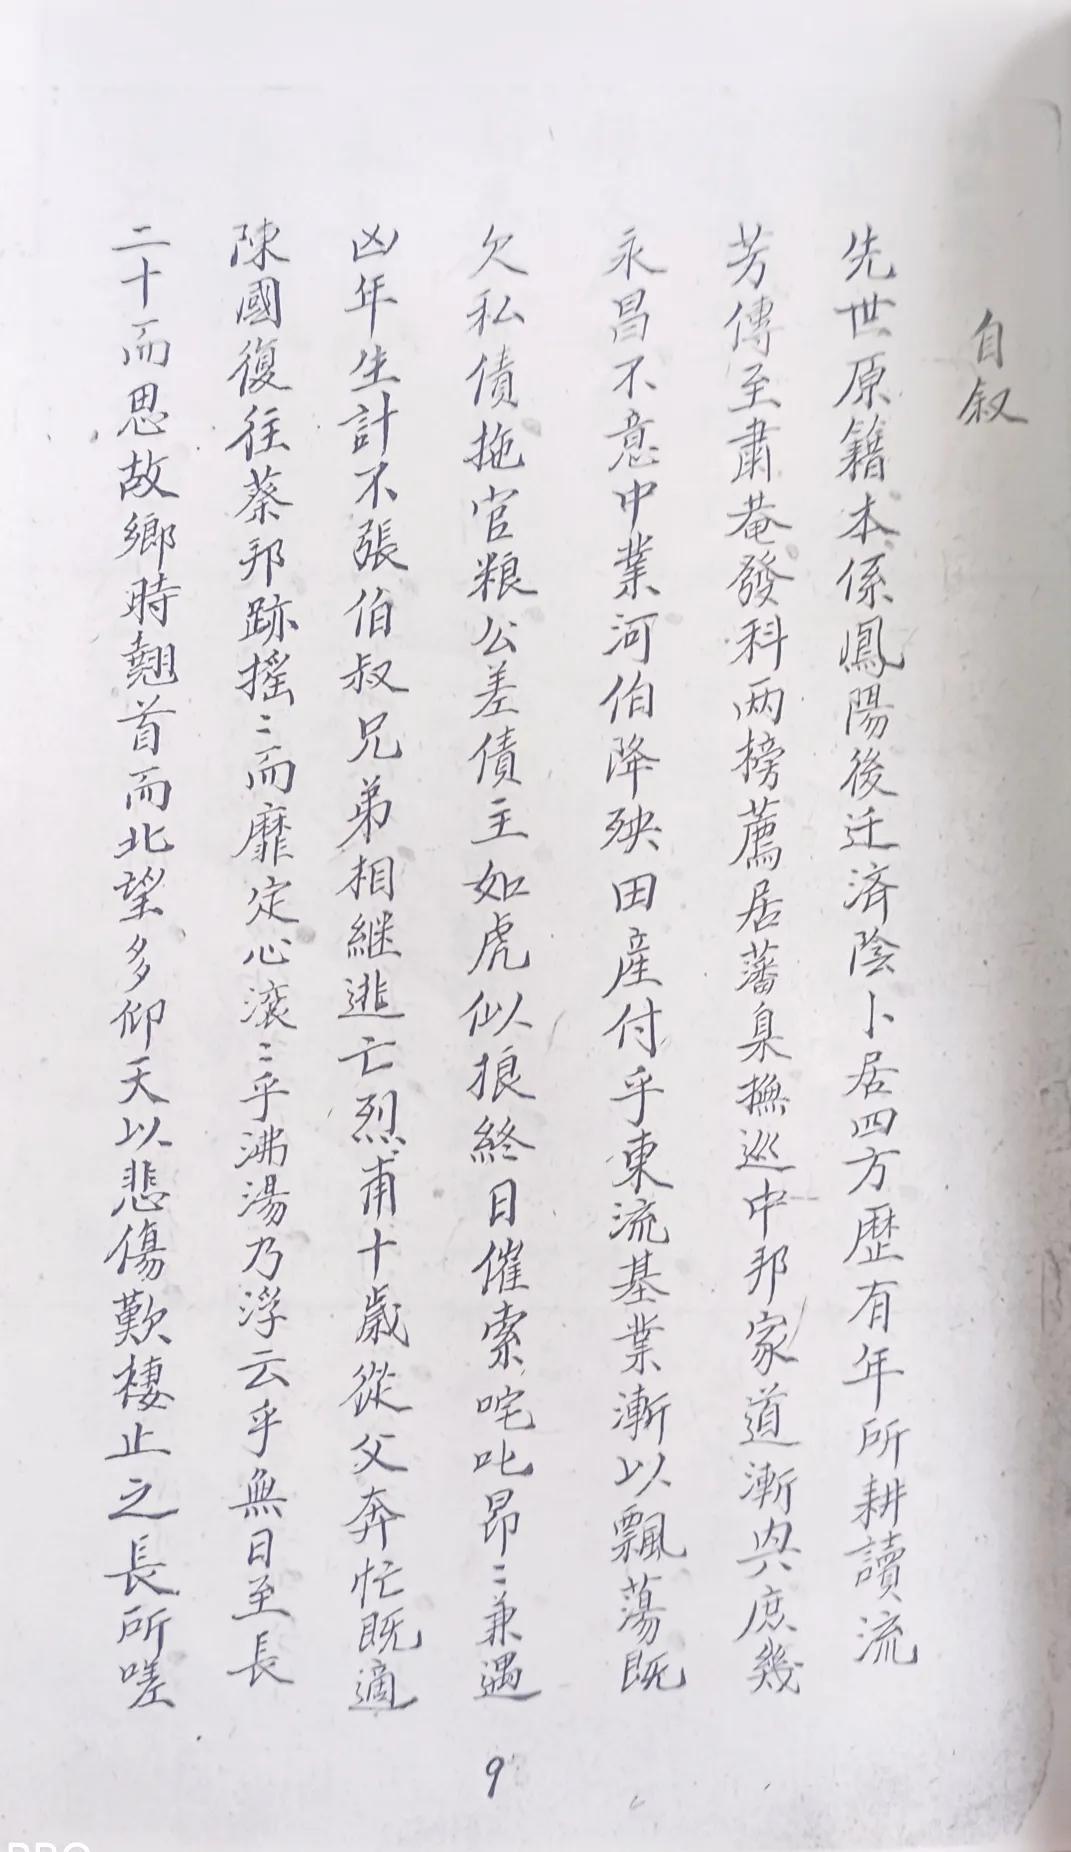 自叙
先世原籍本係鳳陽後迁済陰卜居四方歷有年所耕讀流
芳傳至肅菴發科两榜薦居藩臬撫巡中邦家道漸興庶幾
永昌不意中業河伯降殃田産付乎東流基業漸以飄蕩既
欠私債拖官粮公差債主如虎似狼終日催索咤叱昂〻兼遇
凶年生計不張伯叔兄弟相継逃亡烈甫十歳從父奔忙既適
陳國復往蔡邦跡摇〻而靡定心滚〻乎沸湯乃浮云乎無日至長
二十而思故鄉時翹首而北望多仰天以悲傷歎棲止之長所嗟
9